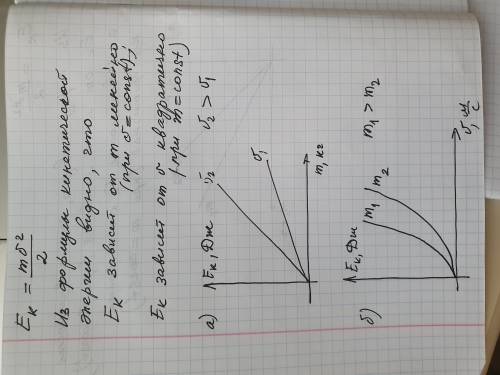 Eк = mυ²/2
Из формулы кинетической
энергии видно, что
Eк зависит от m линейно
(при υ = const);
Eк зависит от υ квадратично
(при m = const)
а) υ₂ > υ₁
Eк, Дж
υ₂
υ₁
m, кг
б) m₁ > m₂
Eк, Дж
m₁
m₂
υ, м/с